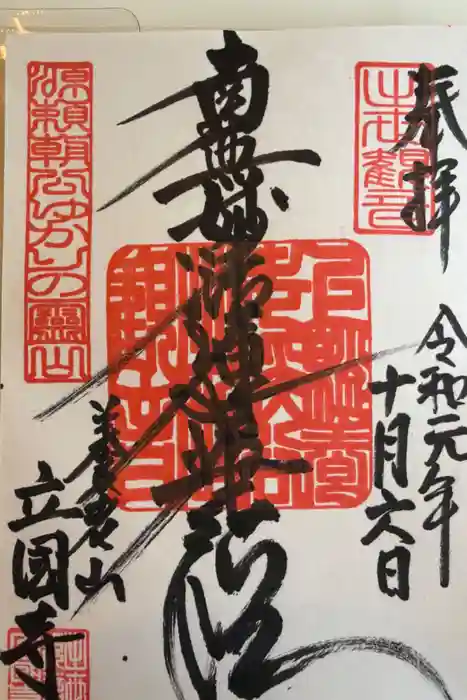 奉拝
令和元年
十月六日
南無妙法蓮華経
養老山
立國寺
源頼朝公ゆかりの霊山